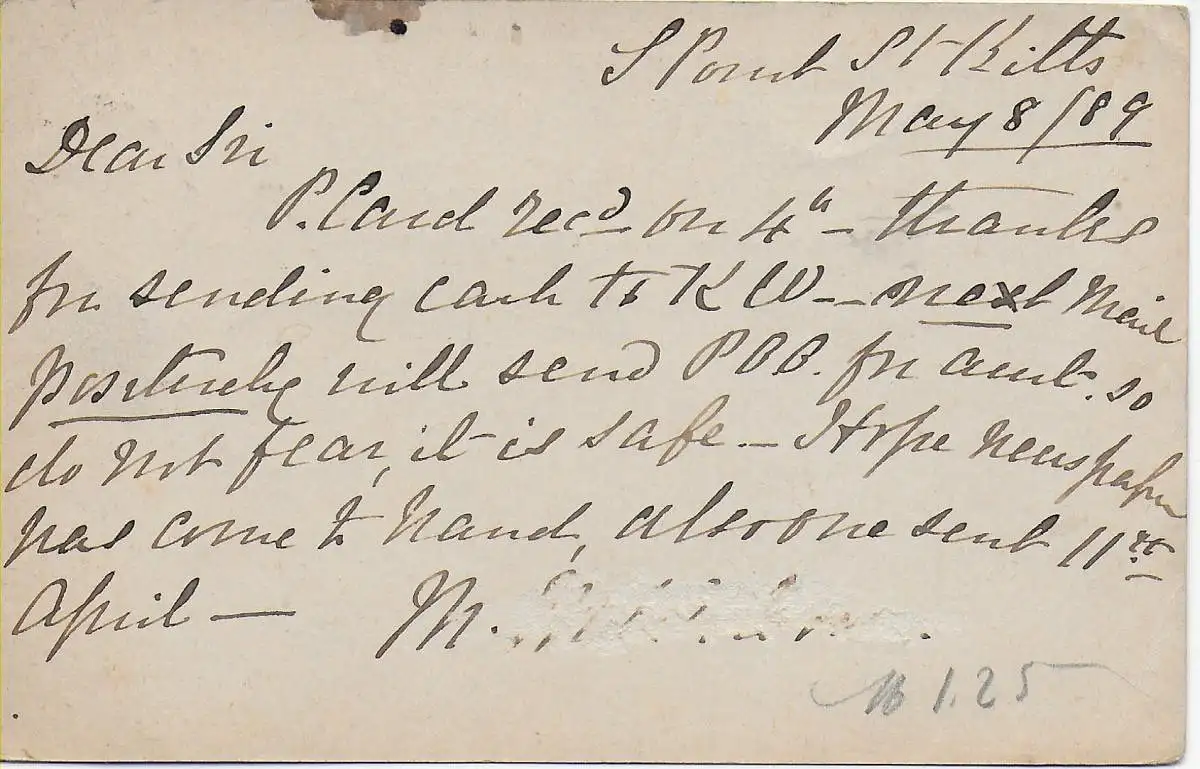 S Point St Kitts
May 8/89
Dear Sir
P. Card recd on 4th – thanks
for sending cash to K W – next Mail
positively will send POO. for amt. so
do not fear, it is safe – I Hope newspaper
has come to hand, also one sent 11th
April —
M.
1.25